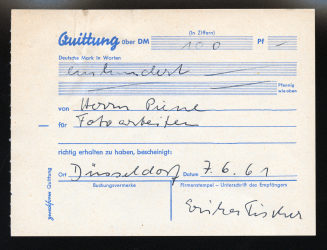 (In Ziffern)
Quittung über DM 100 Pf —
Deutsche Mark in Worten
einhundert —
Pfennig wie oben
von Herrn Piene
für Fotoarbeiten
richtig erhalten zu haben, bescheinigt:
Ort Düsseldorf Datum 7. 6. 61
Buchungsvermerke Firmenstempel - Unterschrift des Empfängers
Fischer
Quittung